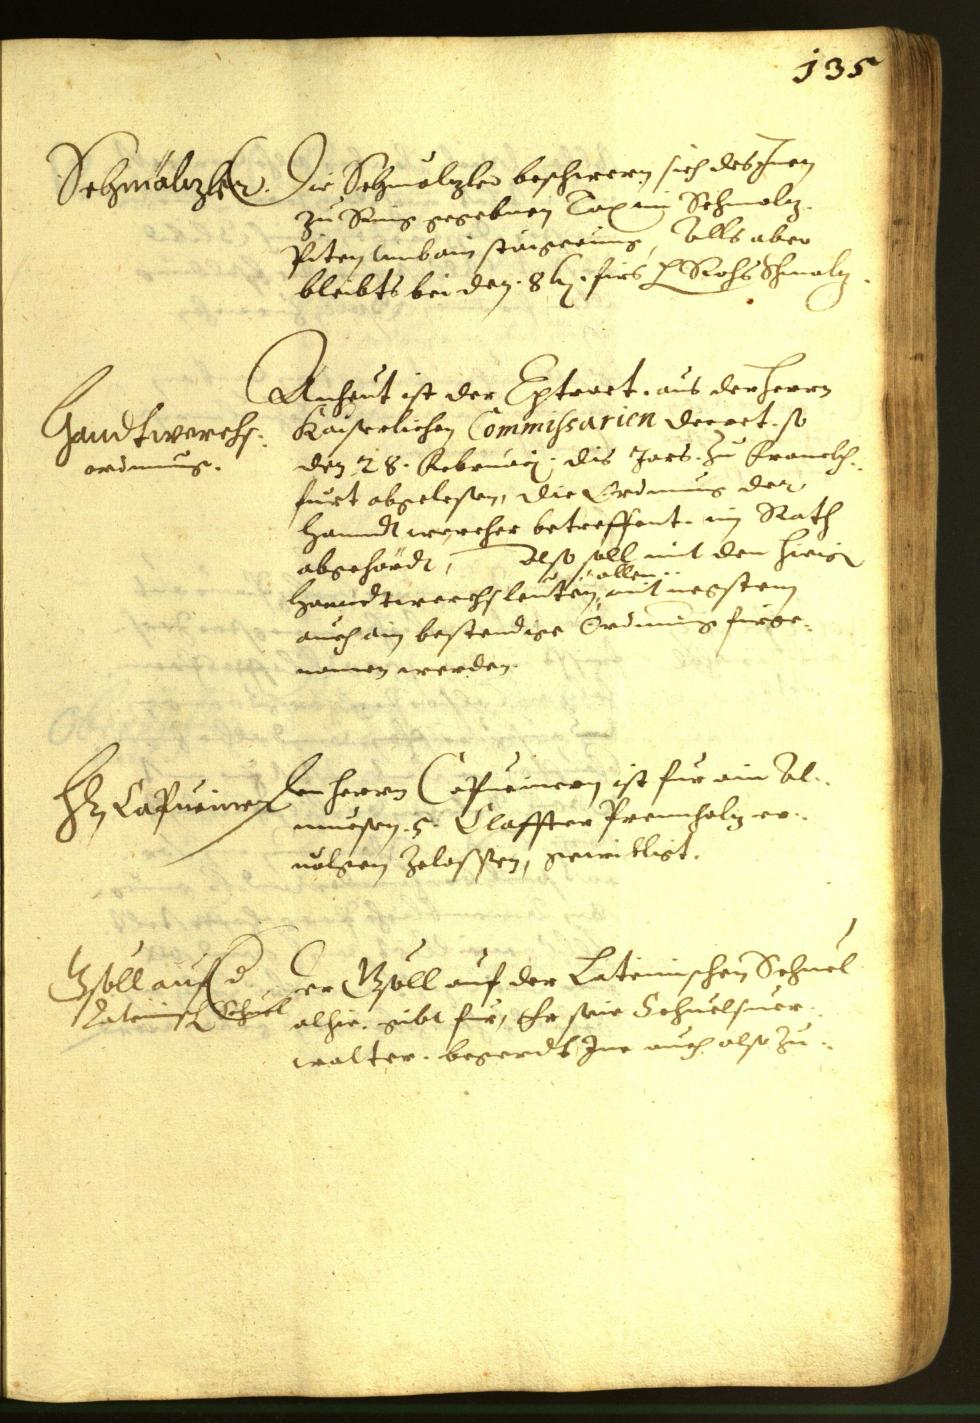 135
Schmälzler.
Die Schmalzler beschwern sich des Jnen
zu Ring gegebnen Tax im Schmalz.
Piten umb ain staigerung, Alls aber
bleibts bei den. 8 kr. firs lb Rohs Schmalz.
Handtwerchs:
ordnung.
Anheut ist der Extract. aus der herrn
Kaiserlichen Commissarien decret. so
den 28. Februarj. dis Jars. zu Franckh:
furt abgelesen, die Ordnung der
Hanndtwercher betreffent. im Rath
abgehördt, Also soll mit den hieig
allen
Hanndtwerchsleuten, mit negstem
auch ain bestendige Ordnung fürge:
nomen werden.
Hn Capuciner
Den herrn Capucinern ist für ain Al:
muesen. 5. Claffter Prennholz er:
uolgen zelassen, gewilligt.
Gsöll auf d
Lateinisch Schuel
Der Gsöll auf der Lateinischen Schuel
alhie. gibt für, Er seie Schuelsuer:
walter. begerdt Jne auch also zu: